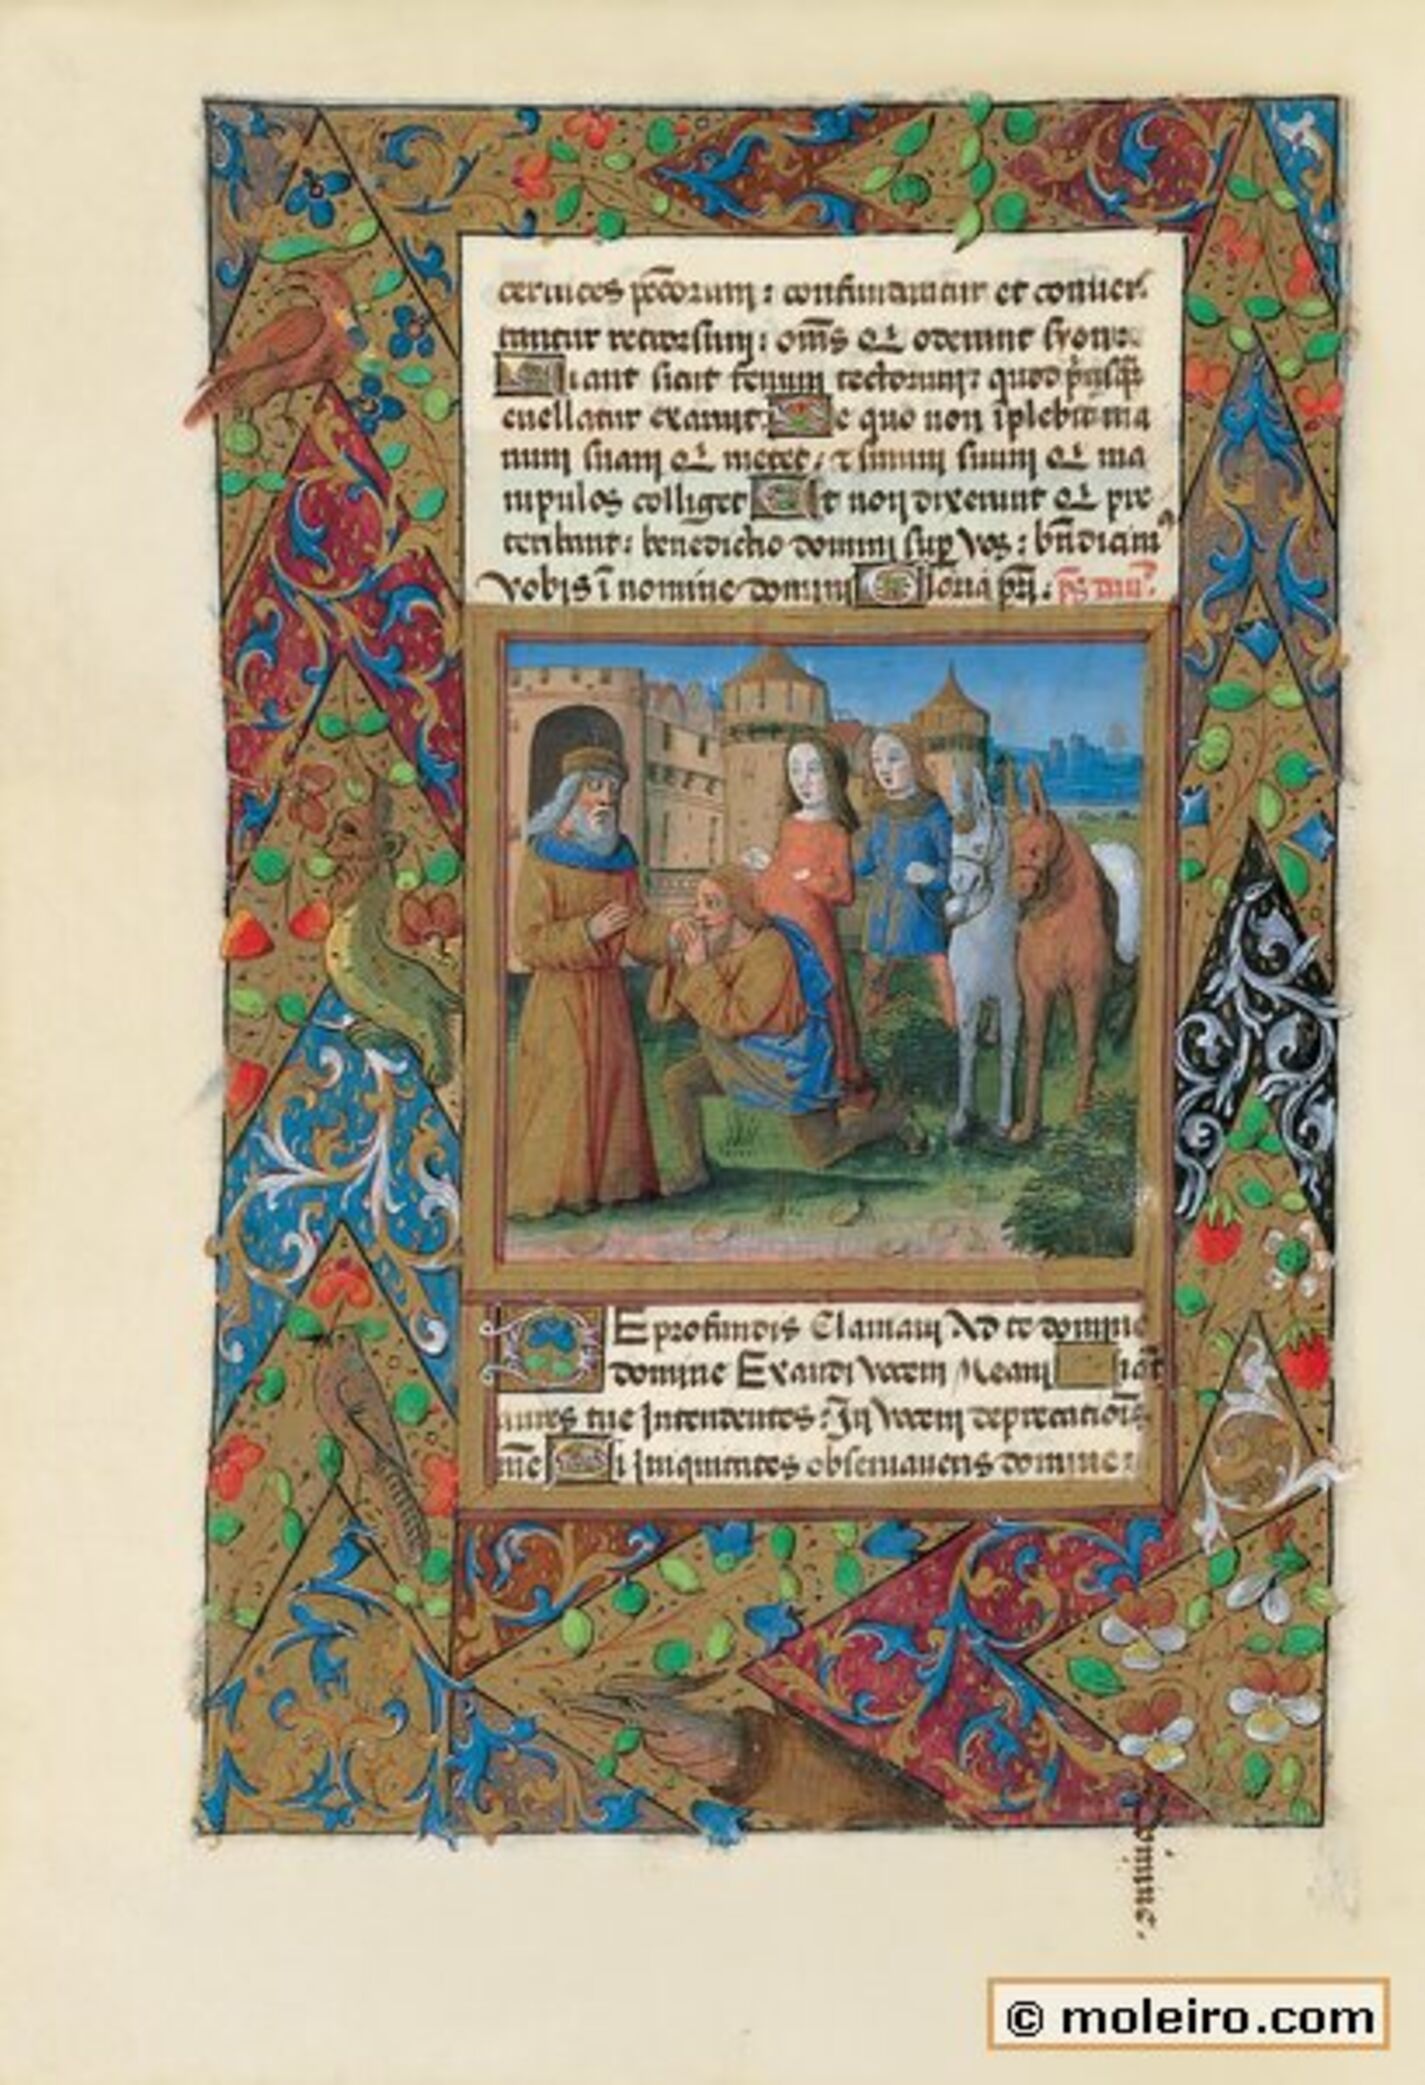 cervices pc̄corum : confundantur et conuer
tantur retrorsum : om̄s q̄ oderunt syon :
Fiant sicut fenum tectorum : quod p̄usq̄
euellatur exaruit . De quo non īplebit ma
num suam q̄ metet : τ sinum suum q̄ ma
nipulos colliget Et non dixerunt q̄ pre
teribant : benedictio domini sup̄ vos : bn̄diximꝰ
vobis ī nomine domini Gloria pr̄i . ps dauid
DE profundis Clamaui Ad te domine
domine Exaudi vocem Meam Fiāt
aures tue Intendentes : In vocem deprecatiōis
mē Si Iniquitates obseruaueris domine :
domine
© moleiro.com